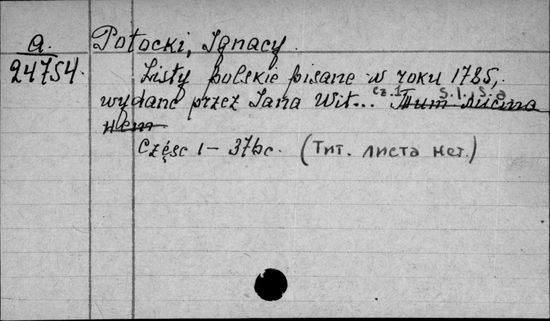 a. Potocki, Ignacy.
24754. Listy polskie pisane w roku 1785,
wydane przez Jana Wit... cz.1 s.l., s.a
Тит. листа
нет
Część 1 – 376c. (Тит. листа нет.)